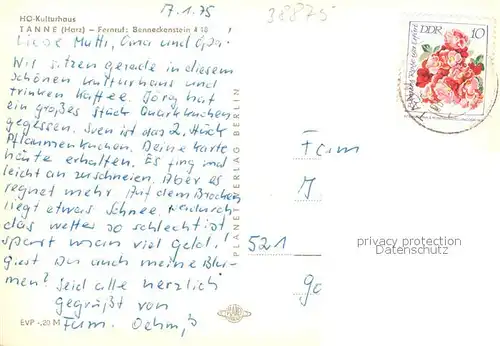 17.1.75
38875
HO-Kulturhaus
TANNE (Harz) – Fernruf: Benneckenstein 418
Liebe Mutti, Oma und Opa!
Wir sitzen gerade in diesem
schönen Kulturhaus und
trinken Kaffee. Jörg hat
ein großes Stück Quarkkuchen
gegessen. Sven ißt das 2. Stück
Pflaumenkuchen. Deine Karte
heute erhalten. Es fing mal
leicht an zu schneien. Aber es
regnet mehr. Auf dem Brocken
liegt etwas Schnee. Dadurch
das Wetter so schlecht ist
spart man viel Geld!
Giest Du auch meine Blu-
men? Seid alle herzlich
gegrüßt von
Fam. Oehm,
EVP -,20 M
PLANET-VERLAG BERLIN
DDR 10
Fam
J
521
90
privacy protection
Datenschutz